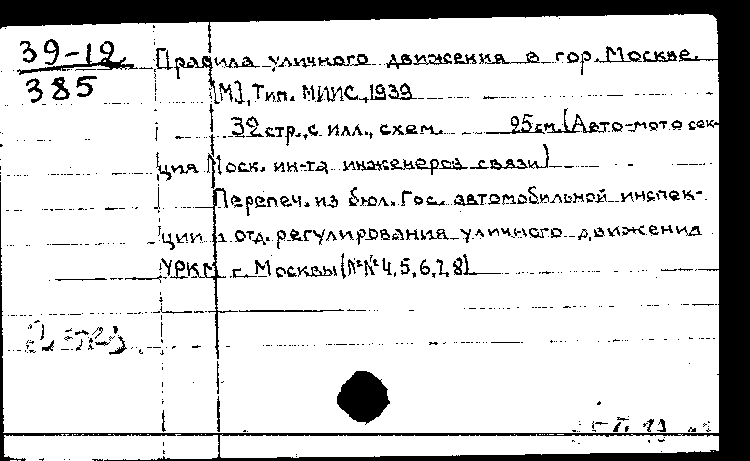 39-12
385
Правила уличного движения в гор. Москве.
[М], Тип. МИИС, 1939
32 стр., с илл., схем. 25 см. (Авто-мото сек-
ция Моск. ин-та инженеров связи)
Перепеч. из бюл. Гос. автомобильной инспек-
ции и отд. регулирования уличного движения
УРКМ г. Москвы (№№ 4, 5, 6, 7, 8)
2 экз.